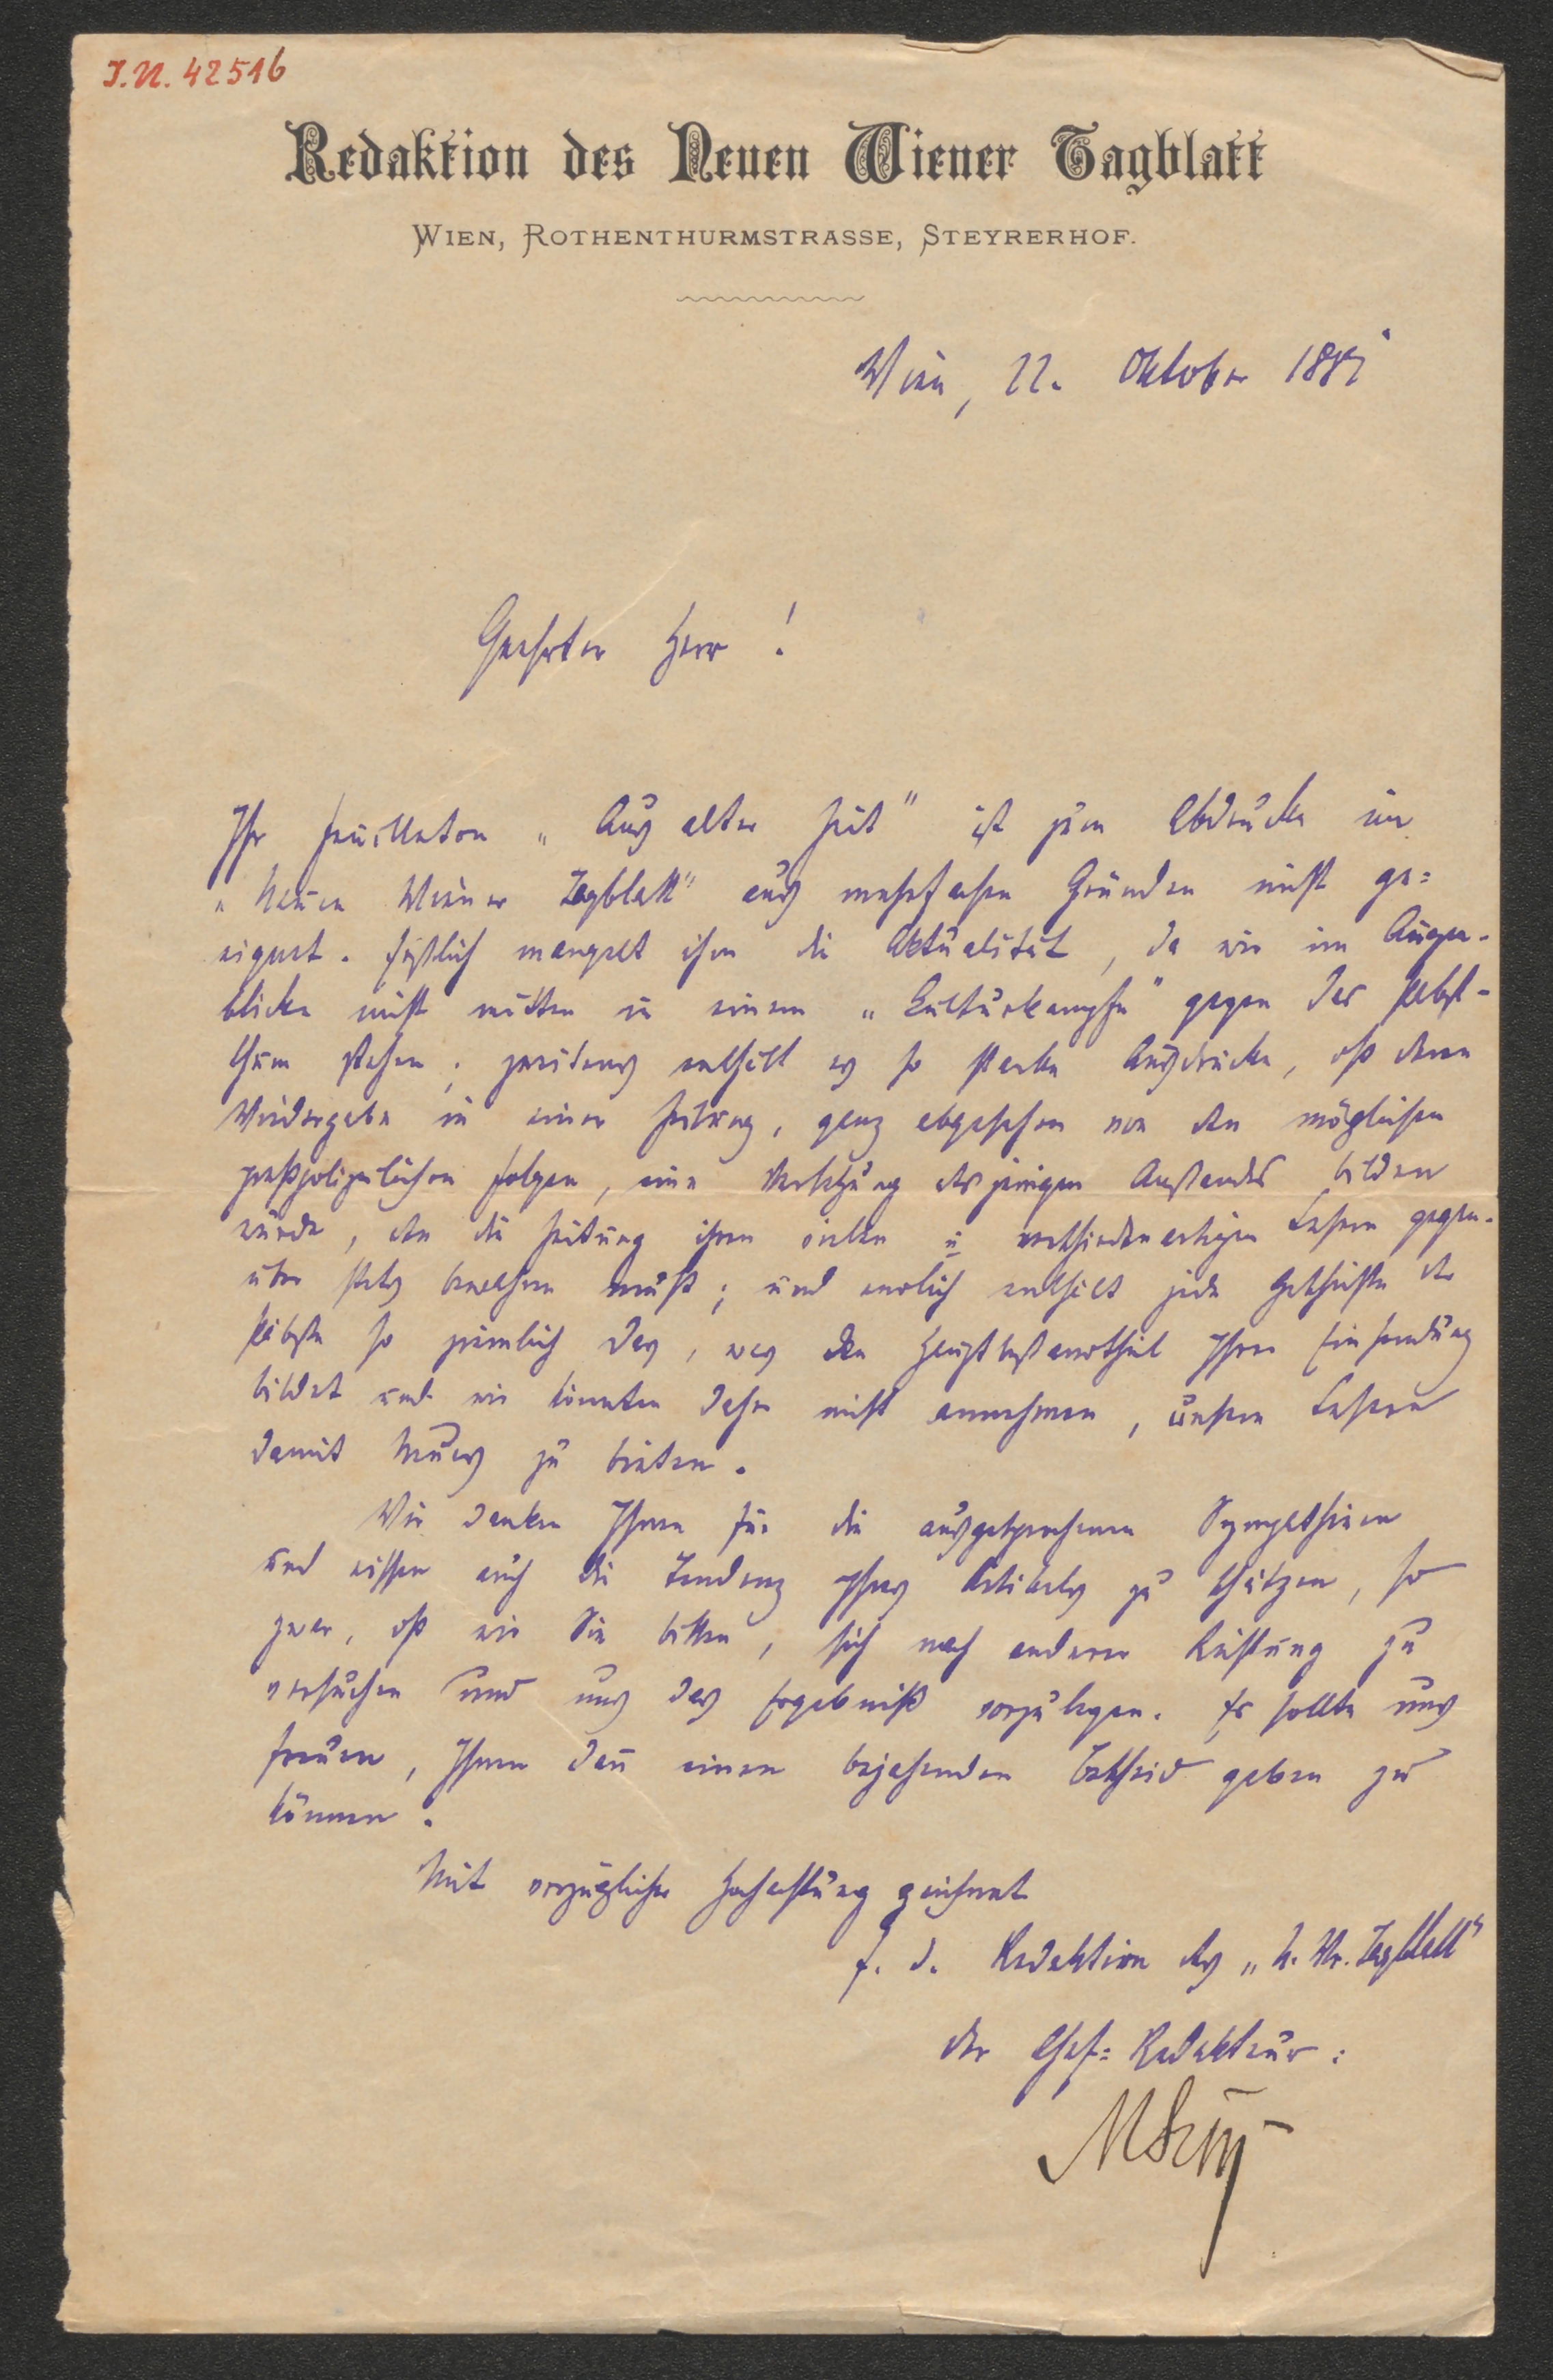 I.N. 42516
Redaktion des Neuen Wiener Tagblatt
WIEN, ROTHENTHURMSTRASSE, STEYRERHOF.
Wien, 22. Oktober 188
Geehrter Herr!
Ihr Feuilleton „Aus alter Zeit" ist zum Abdrucke im
„Neuen Wiener Tagblatt" aus mehrfachen Gründen nicht ge=
eignet. Erstlich mangelt ihm die Aktualität, da wir im Augen-
blicke nicht mitten in einem „Culturkampfe" gegen das Pabst-
thum stehen; zweitens enthält es so starke Ausdrücke, daß deren
Wiedergabe in einer Zeitung, ganz abgesehen von den möglichen
preßpolizeilichen Folgen, eine Verletzung desjenigen Anstandes bilden
würde, den die Zeitung ihren vielen u verschiedenartigen Lesern gegen-
über stets bewahren muß; und endlich enthält jede Geschichte der
Päbste so ziemlich das, was den Hauptbestandtheil Ihrer Einsendung
bildet und wir könnten daher nicht annehmen, unsern Lesern
damit Neues zu bieten.
Wir danken Ihnen für die ausgesprochenen Sympathieen
und wissen auch die Tendenz Ihres Artikels zu schätzen, so
zwar, daß wir Sie bitten, sich nach anderer Richtung zu
versuchen und uns das Ergebniß vorzulegen. Es sollte uns
freuen, Ihnen dan̄ einen bejahenden Bescheid geben zu
können.
Mit vorzüglicher Hochachtung zeichnet
f. d. Redaktion des „N. Wr. Tagblatt"
der Chef=Redakteur: